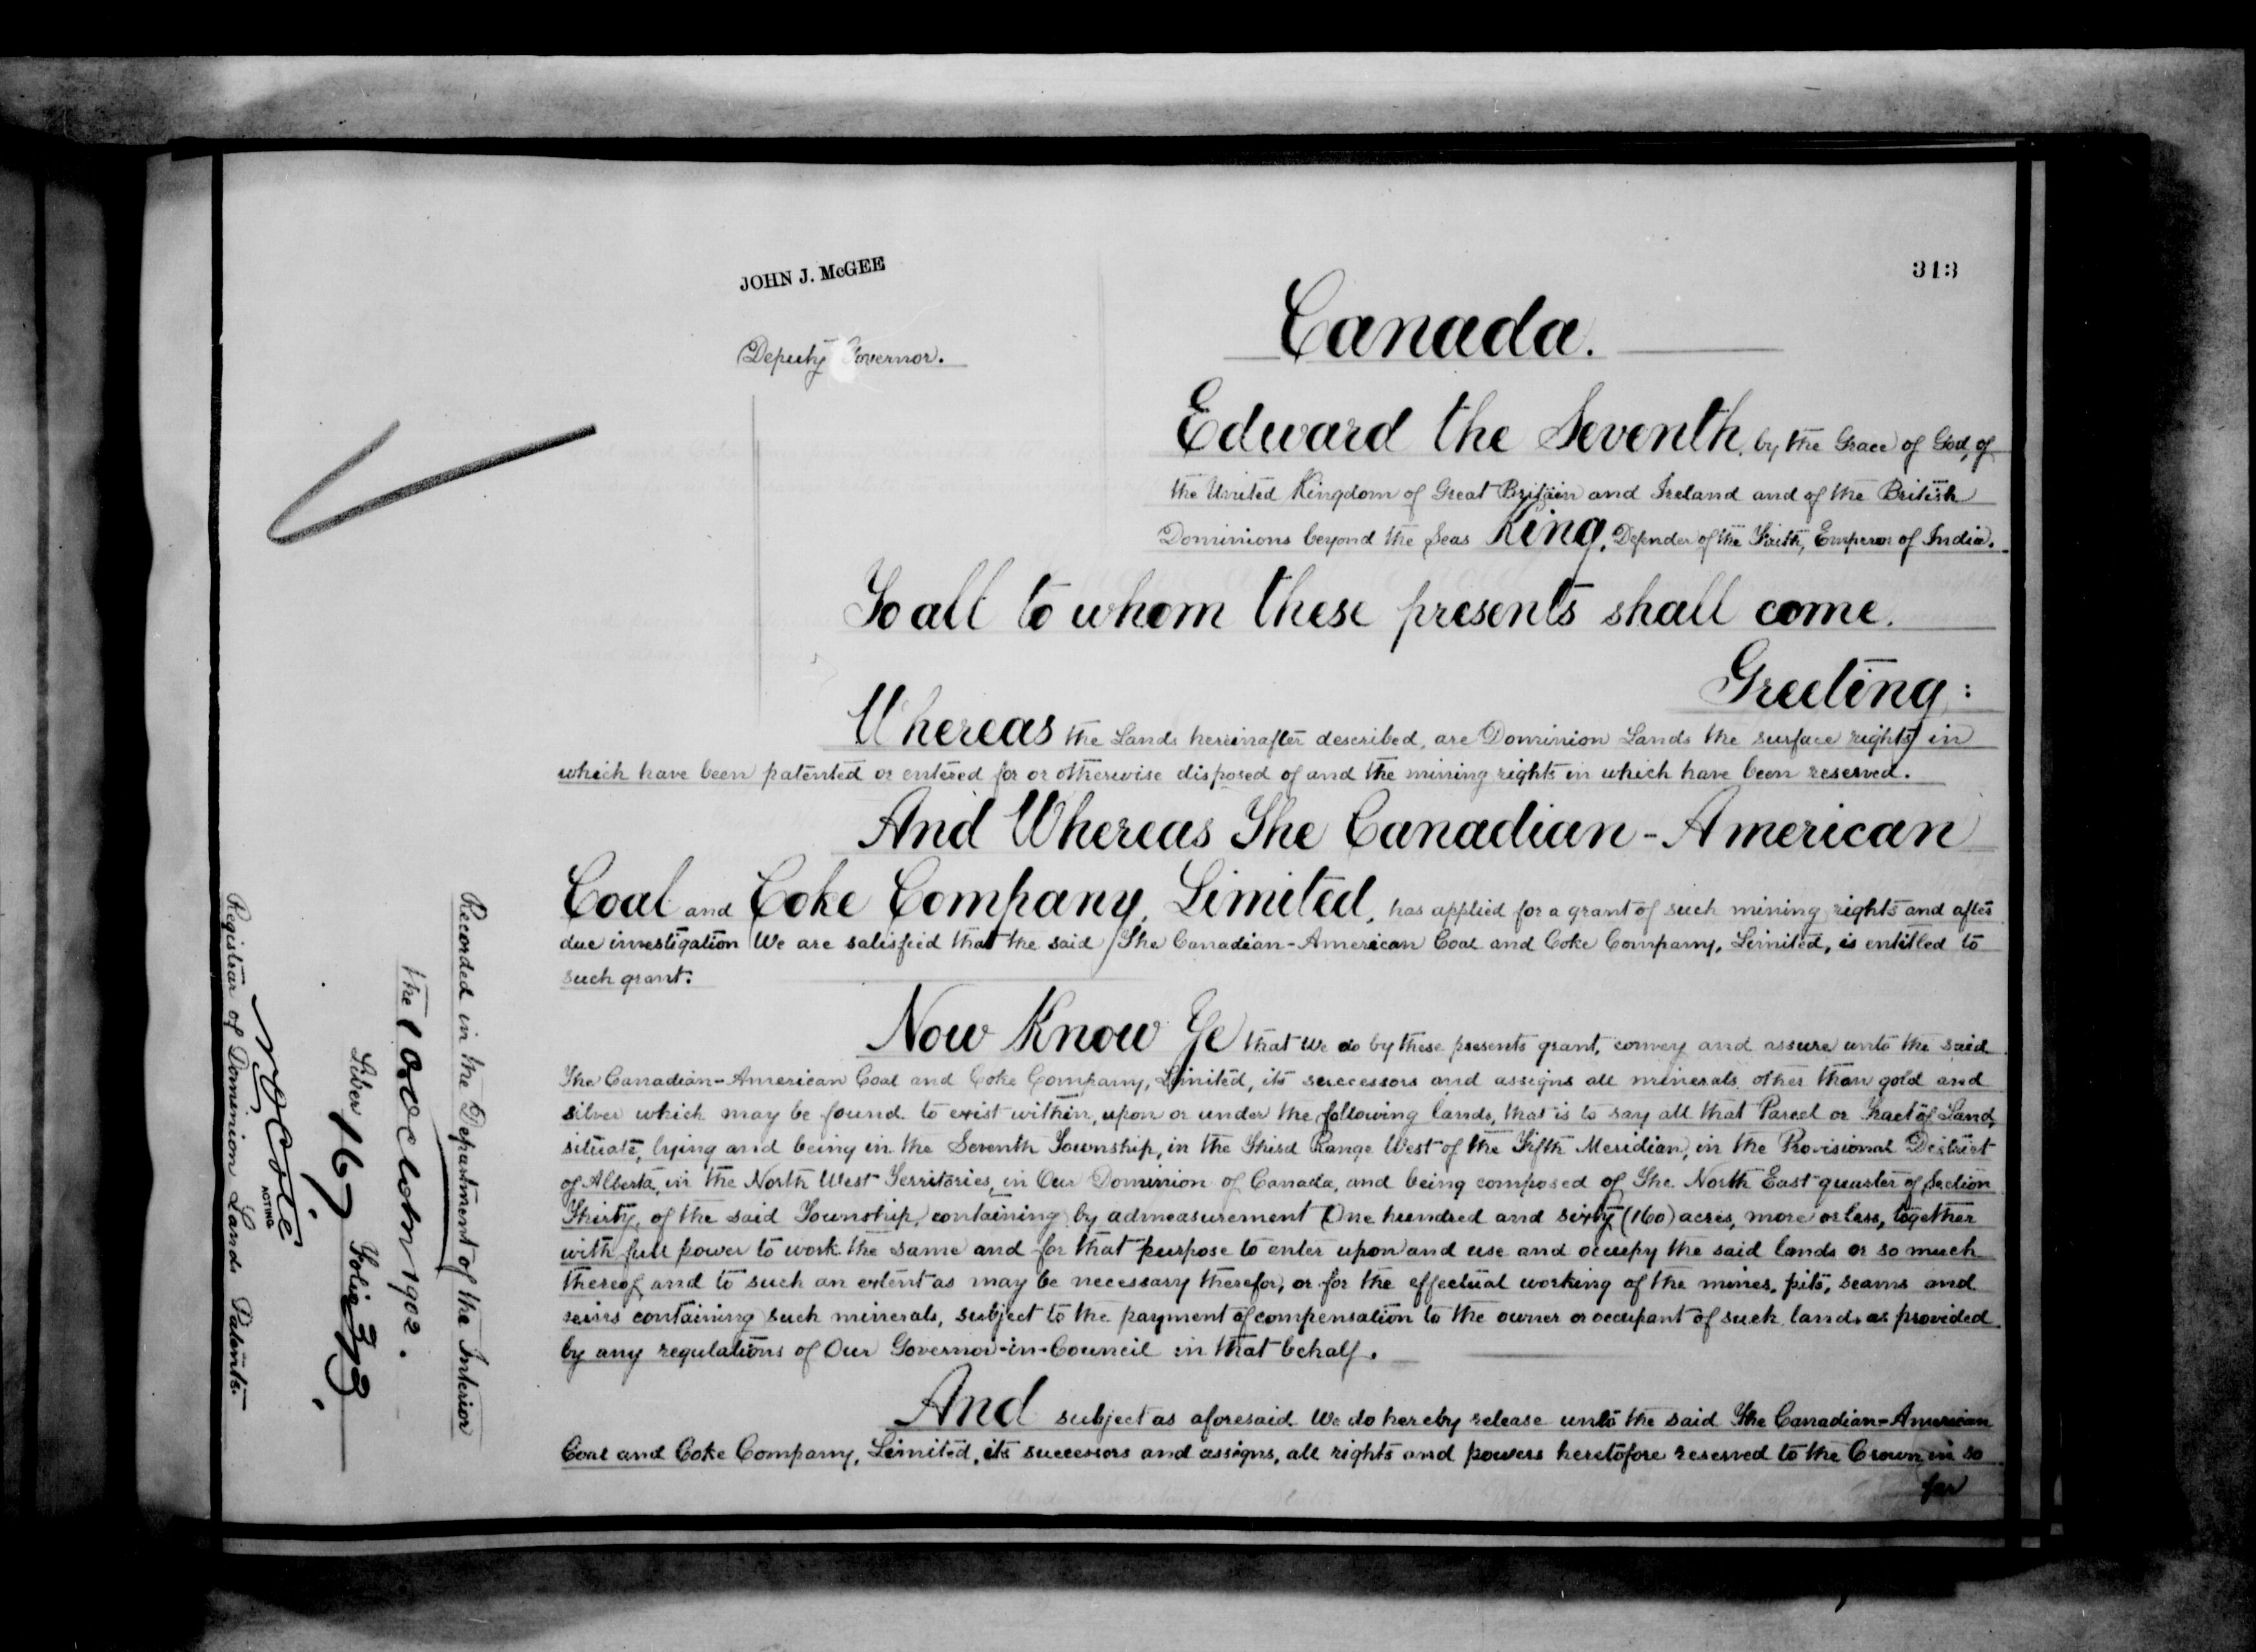 313
JOHN J. McGEE
Deputy Governor.
Canada.
Edward the Seventh, by the Grace of God, of
the United Kingdom of Great Britain and Ireland and of the British
Dominions beyond the Seas King, Defender of the Faith, Emperor of India.
To all to whom these presents shall come.
Greeting:
Whereas the Lands hereinafter described, are Dominion Lands the surface rights in
which have been patented or entered for or otherwise disposed of and the mining rights in which have been reserved.
And Whereas The Canadian-American
Coal and Coke Company, Limited, has applied for a grant of such mining rights and after
due investigation We are satisfied that the said The Canadian-American Coal and Coke Company, Limited, is entitled to
such grant.
Now Know Ye that We do by these presents grant, convey and assure unto the said
The Canadian-American Coal and Coke Company, Limited, its successors and assigns all minerals other than gold and
silver which may be found to exist within, upon or under the following lands, that is to say all that Parcel or Tract of Land,
situate, lying and being in the Seventh Township, in the Third Range West of the Fifth Meridian, in the Provisional District
of Alberta, in the North West Territories, in Our Dominion of Canada, and being composed of The North East quarter of Section
Thirty, of the said Township, containing by admeasurement One hundred and sixty (160) acres, more or less, together
with full power to work the same and for that purpose to enter upon and use and occupy the said lands or so much
thereof and to such an extent as may be necessary therefor, or for the effectual working of the mines, pits, seams and
veins containing such minerals, subject to the payment of compensation to the owner or occupant of such lands as provided
by any regulations of Our Governor-in-Council in that behalf.
And subject as aforesaid We do hereby release unto the said The Canadian-American
Coal and Coke Company, Limited, its successors and assigns, all rights and powers heretofore reserved to the Crown in so
far
Recorded in the Department of the Interior
the 10 October 1902.
Liber 167 Folio 313
ACTING
Registrar of Dominion Lands Patents.